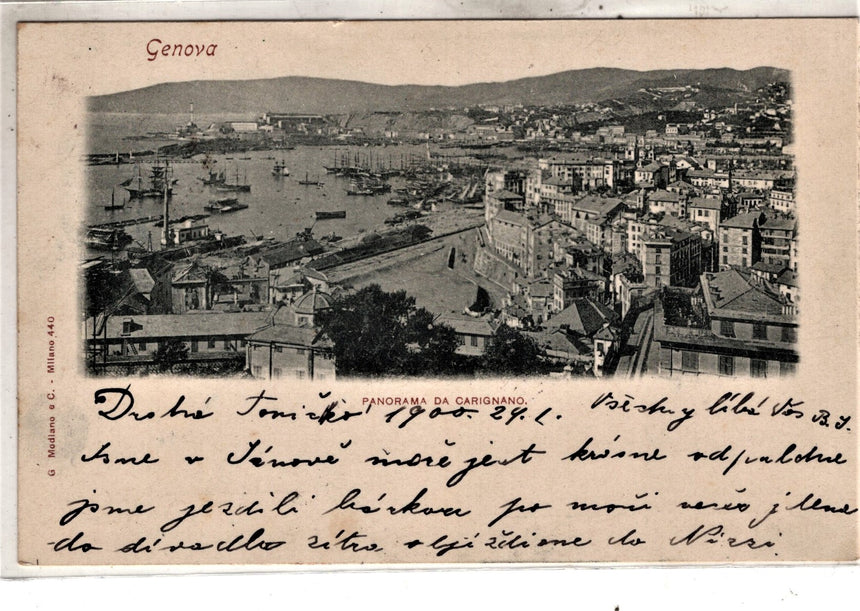 Genova
G Modiano e C. - Milano 440
PANORAMA DA CARIGNANO.
Drahá Toničko! 1900. 29. 1. Všechny líbá Vás B. J.
Jsme v Jánově moře jest krásne odpoledne
jsme jezdili bárkou po moři večer jdeme
do divadla zítra objíždíme do Nizzi.